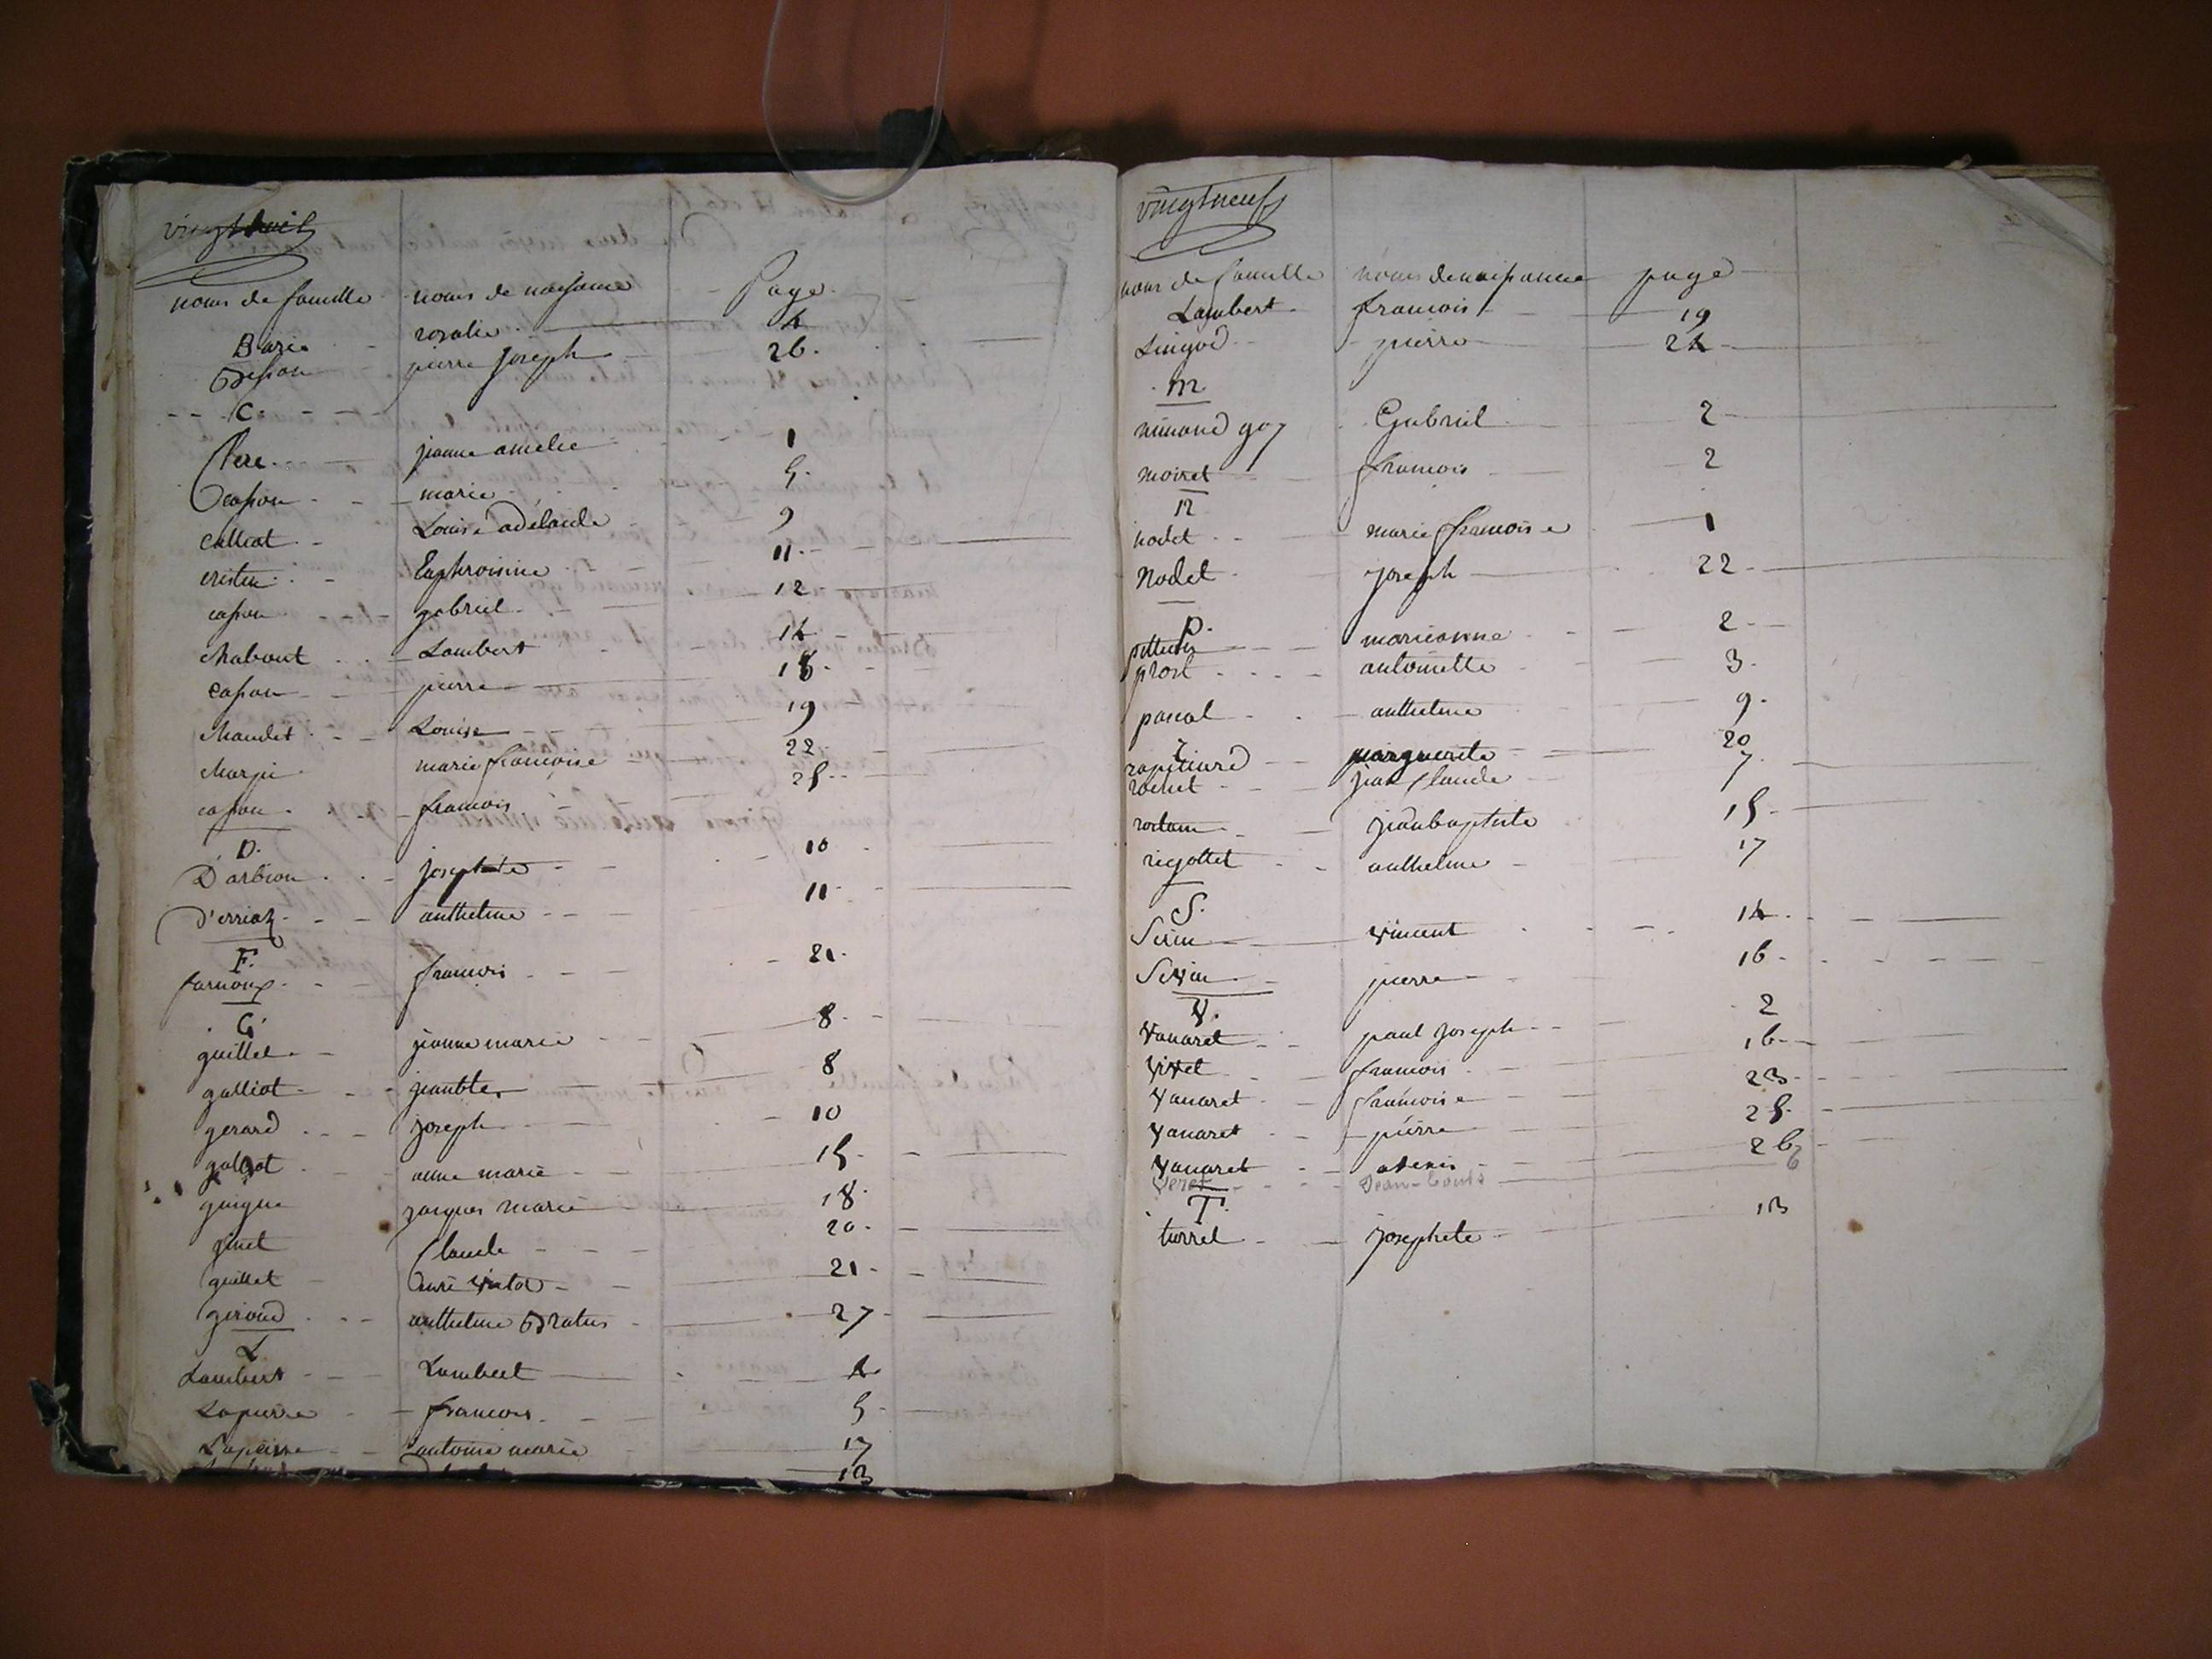 vingthuit
noms de famille noms de naissance Page
Barie rosalie 4
pierre joseph 26
C.
Clere jeanne amelie 1
Caſson marie 5
Calliat Louise adélaide 9
cristin Euphroisine 11
caſson gabriel 12
chabout Lambert 14
caſson pierre 18
chaudet Louise 19
Charpi marie francoise 22
caſson francois 25
D.
D'arbion josephte 10
D'erriaz anthelme 11
F.
farnoux francois 21
G
guillet jeanne marie 8
galliot 8
gerard joseph 10
galliot anne marie 15
guigue jacques marie 18
ginet Claude 20
guillet 21
giroud anthelme Bratus 27
L
Lambert Lambert 4
Lapierre francois 5
Lapierre antoine marie 17
13
vingtneuf
noms de famille noms de naiſsance page
Lambert francois 19
Lingod pierre 24
m
minand goy Gabriel 2
moiret francois 2
n
nodet marie francoise 1
Nodet joseph 22
P.
marieanne 2
prost antoinette 3
pascal anthelme 9
marguerite 20
rochet jean Claude 7
jeanbaptiste 15
rigottet anthelme 17
S.
Serin vincent 14
Serin pierre 16
V.
Vanaret paul joseph 2
Vivet francois 16
Vanaret francoise 23
Vanaret pierre 25
Vanaret denis 26
Veret Jean-Louis 6
T.
turrel josephete 13